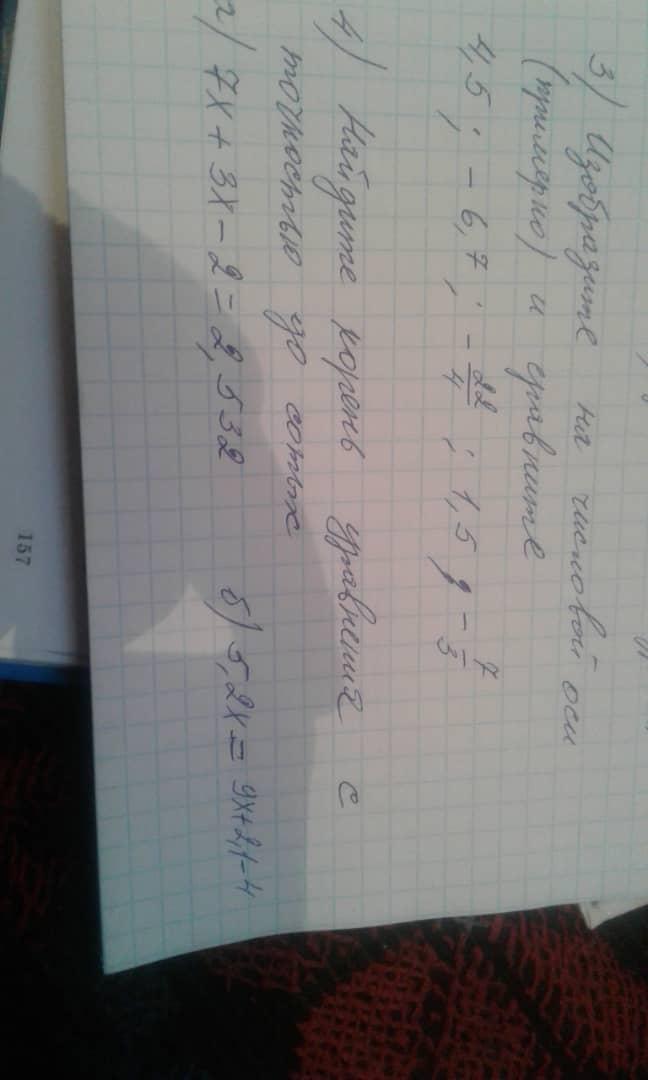 3) Изобразите на числовой оси
(примерно) и сравните
4,5 ; - 6,7 ; - 22/4 ; 1,5 ; - 7/3
4) Найдите корень уравнения с
точностью до сотых
а) 7x + 3x - 2 = 2,532 б) 5,2x = 9x+2,1-4
157